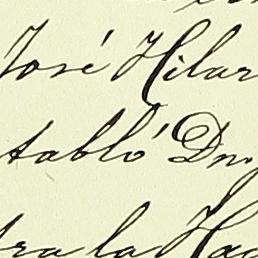 José Hilar
tabló Dn
tra la Hac